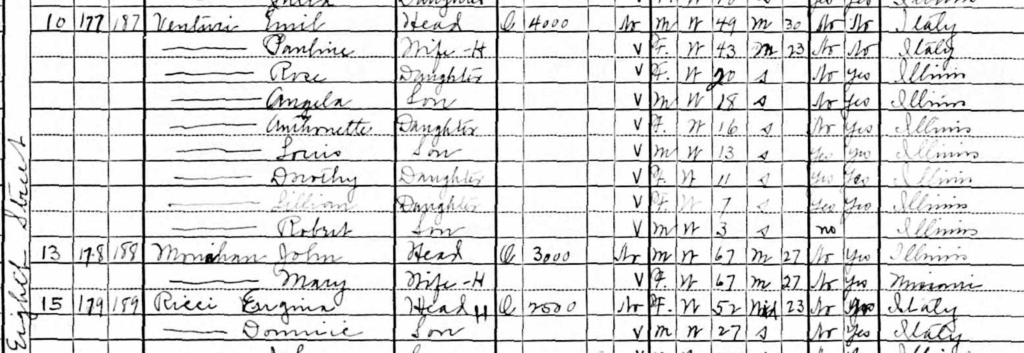 Daughter
10 177 187 Venturi Emil Head O 4000 No M W 49 M 30 No No Italy
Pauline Wife-H V F W 43 M 23 No No Italy
Rose Daughter V F W 20 S No Yes Illinois
Angela Son V M W 18 S No Yes Illinois
Anthonette Daughter V F W 16 S No Yes Illinois
Louis Son V M W 13 S Yes Yes Illinois
Dorothy Daughter V F W 11 S Yes Yes Illinois
Lillian Daughter V F W 7 S Yes Yes Illinois
Robert Son V M W 3 S no Illinois
13 178 188 Monahan John Head O 3000 No M W 67 M 27 No Yes Illinois
Mary Wife-H V F W 67 M 27 No Yes Missouri
15 179 189 Ricci Eugina Head H O 2500 No F W 52 Wd 23 No Yes Italy
Dominic Son V M W 27 S No Yes Italy
Eighth Street